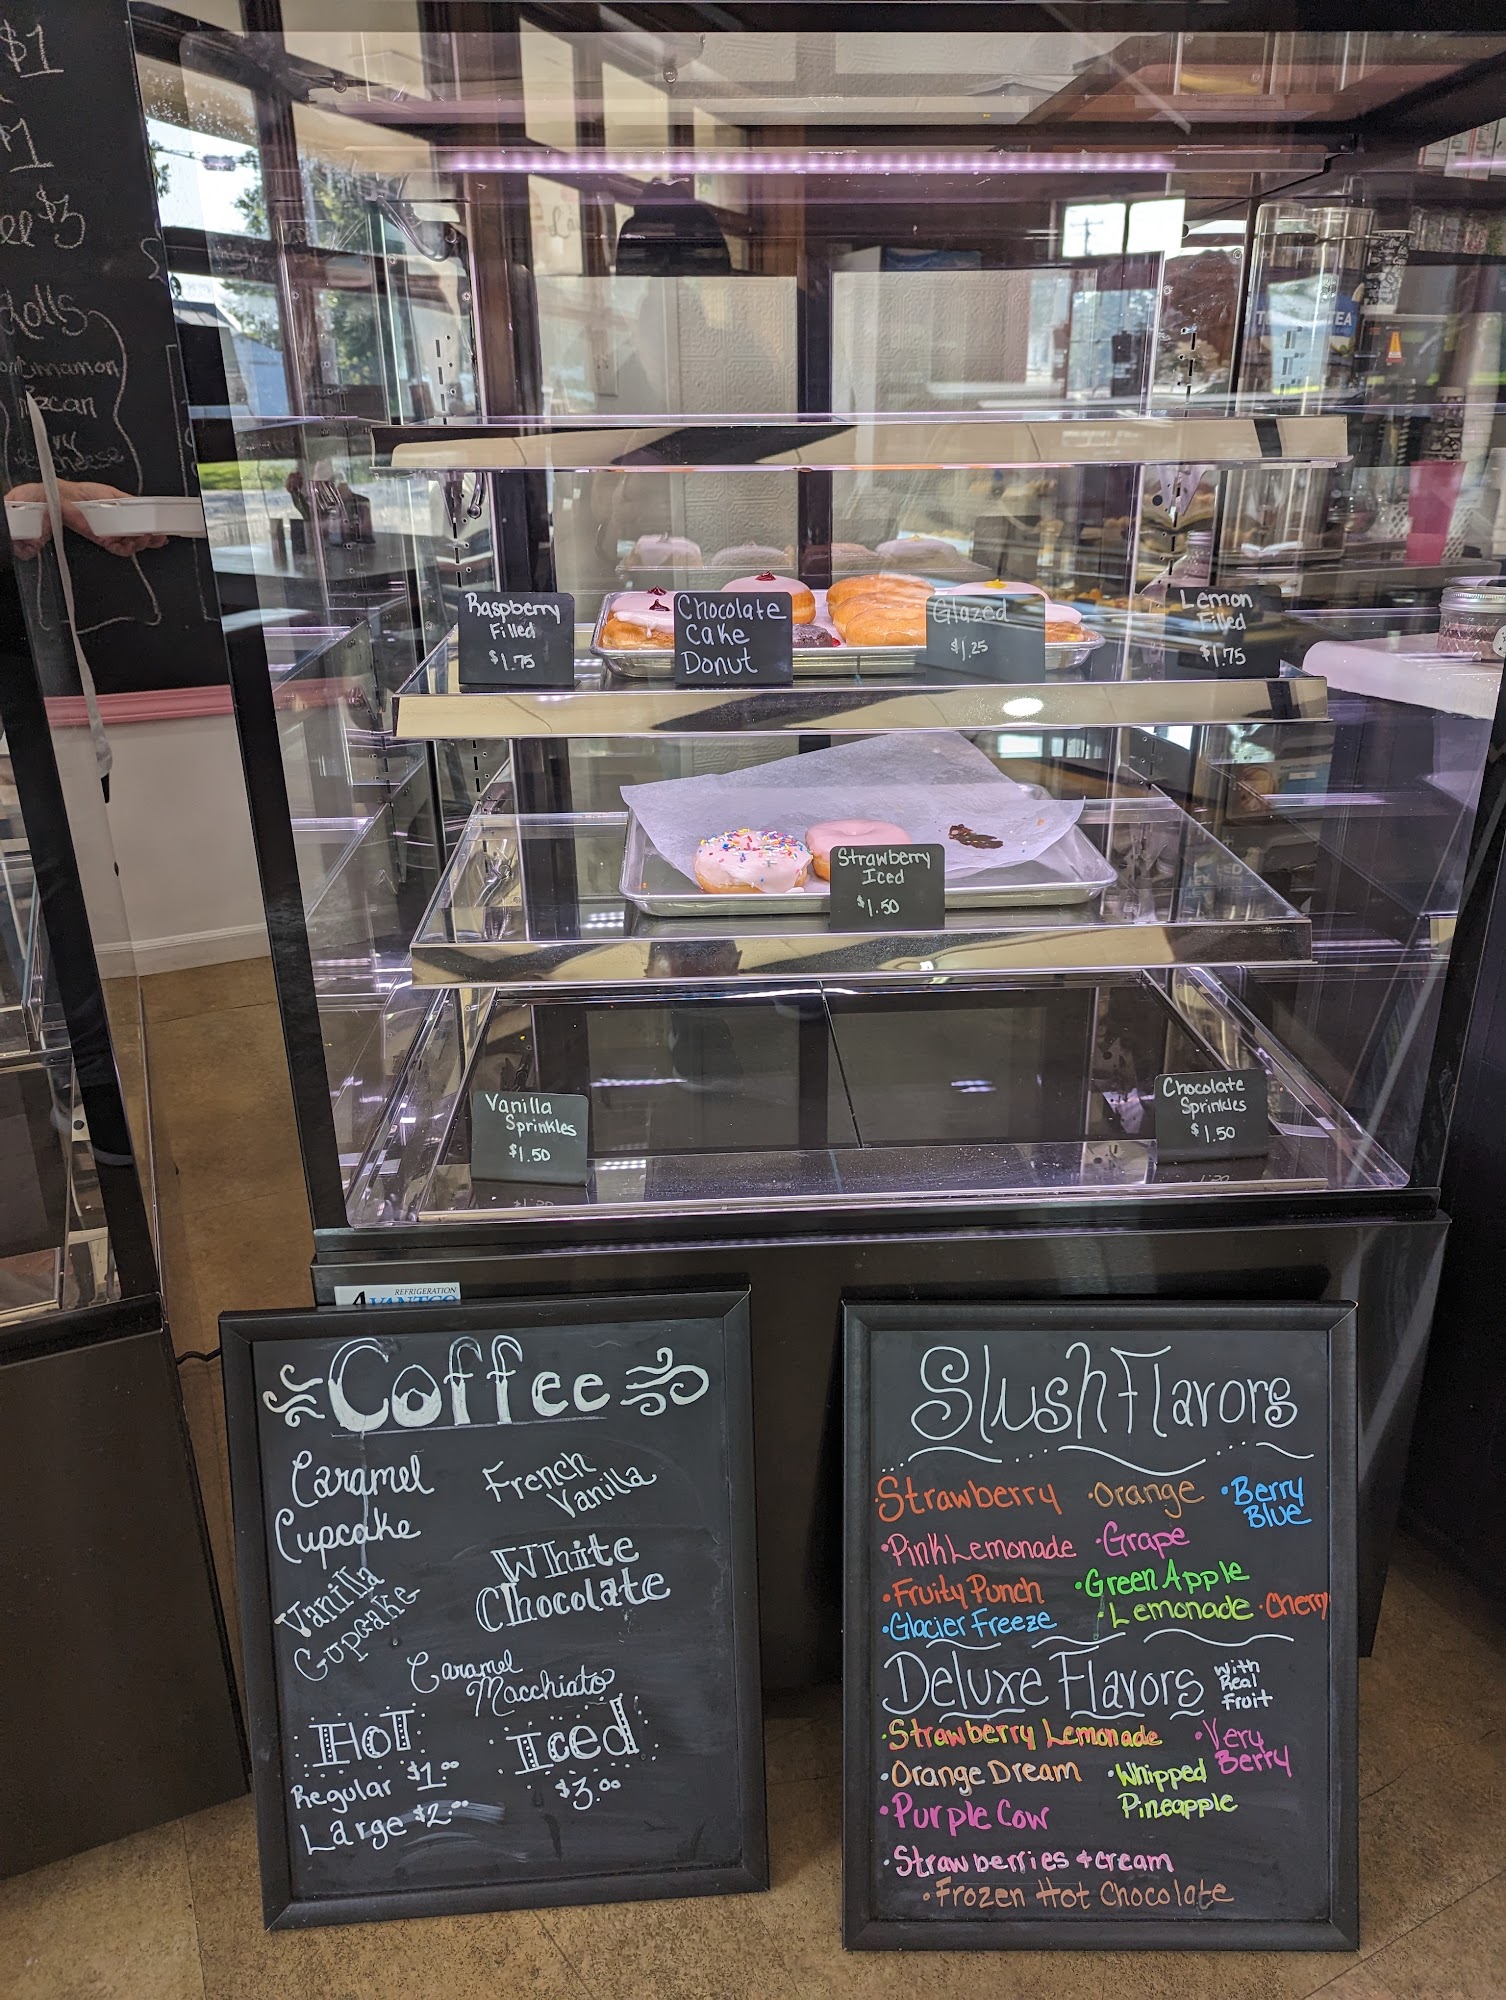 $1
$1
$3
Cinnamon
Raspberry
Filled
$1.75
Chocolate
Cake
Donut
Glazed
$1.25
Lemon
Filled
$1.75
TEA
Strawberry
Iced
$1.50
Vanilla
Sprinkles
$1.50
Chocolate
Sprinkles
$1.50
REFRIGERATION
Coffee
Caramel
Cupcake
French
Vanilla
Vanilla
Cupcake
White
Chocolate
Caramel
Macchiato
Hot
Regular $1.00
Large $2.00
Iced
$3.00
Slush Flavors
Strawberry ·Orange ·Berry
Blue
·Pink Lemonade ·Grape
·Fruity Punch ·Green Apple
·Glacier Freeze ·Lemonade ·Cherry
Deluxe Flavors with
Real
Fruit
·Strawberry Lemonade ·Very
Berry
·Orange Dream ·Whipped
Pineapple
·Purple Cow
·Strawberries + cream
·Frozen Hot Chocolate